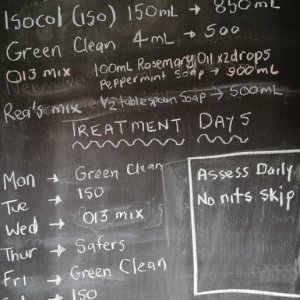 Isocol (150) 150mL → 850mL
Green Clean 4mL → 500
O13 mix 100mL Rosemary Oil x2drops
Peppermint Soap → 900mL
Rea's mix ½ tablespoon Soap → 500mL
TREATMENT DAYS
Mon → Green Clean
Tue → 150
Wed → O13 mix
Thur → Safers
Fri → Green Clean
→ 150
Assess Daily
No nits skip